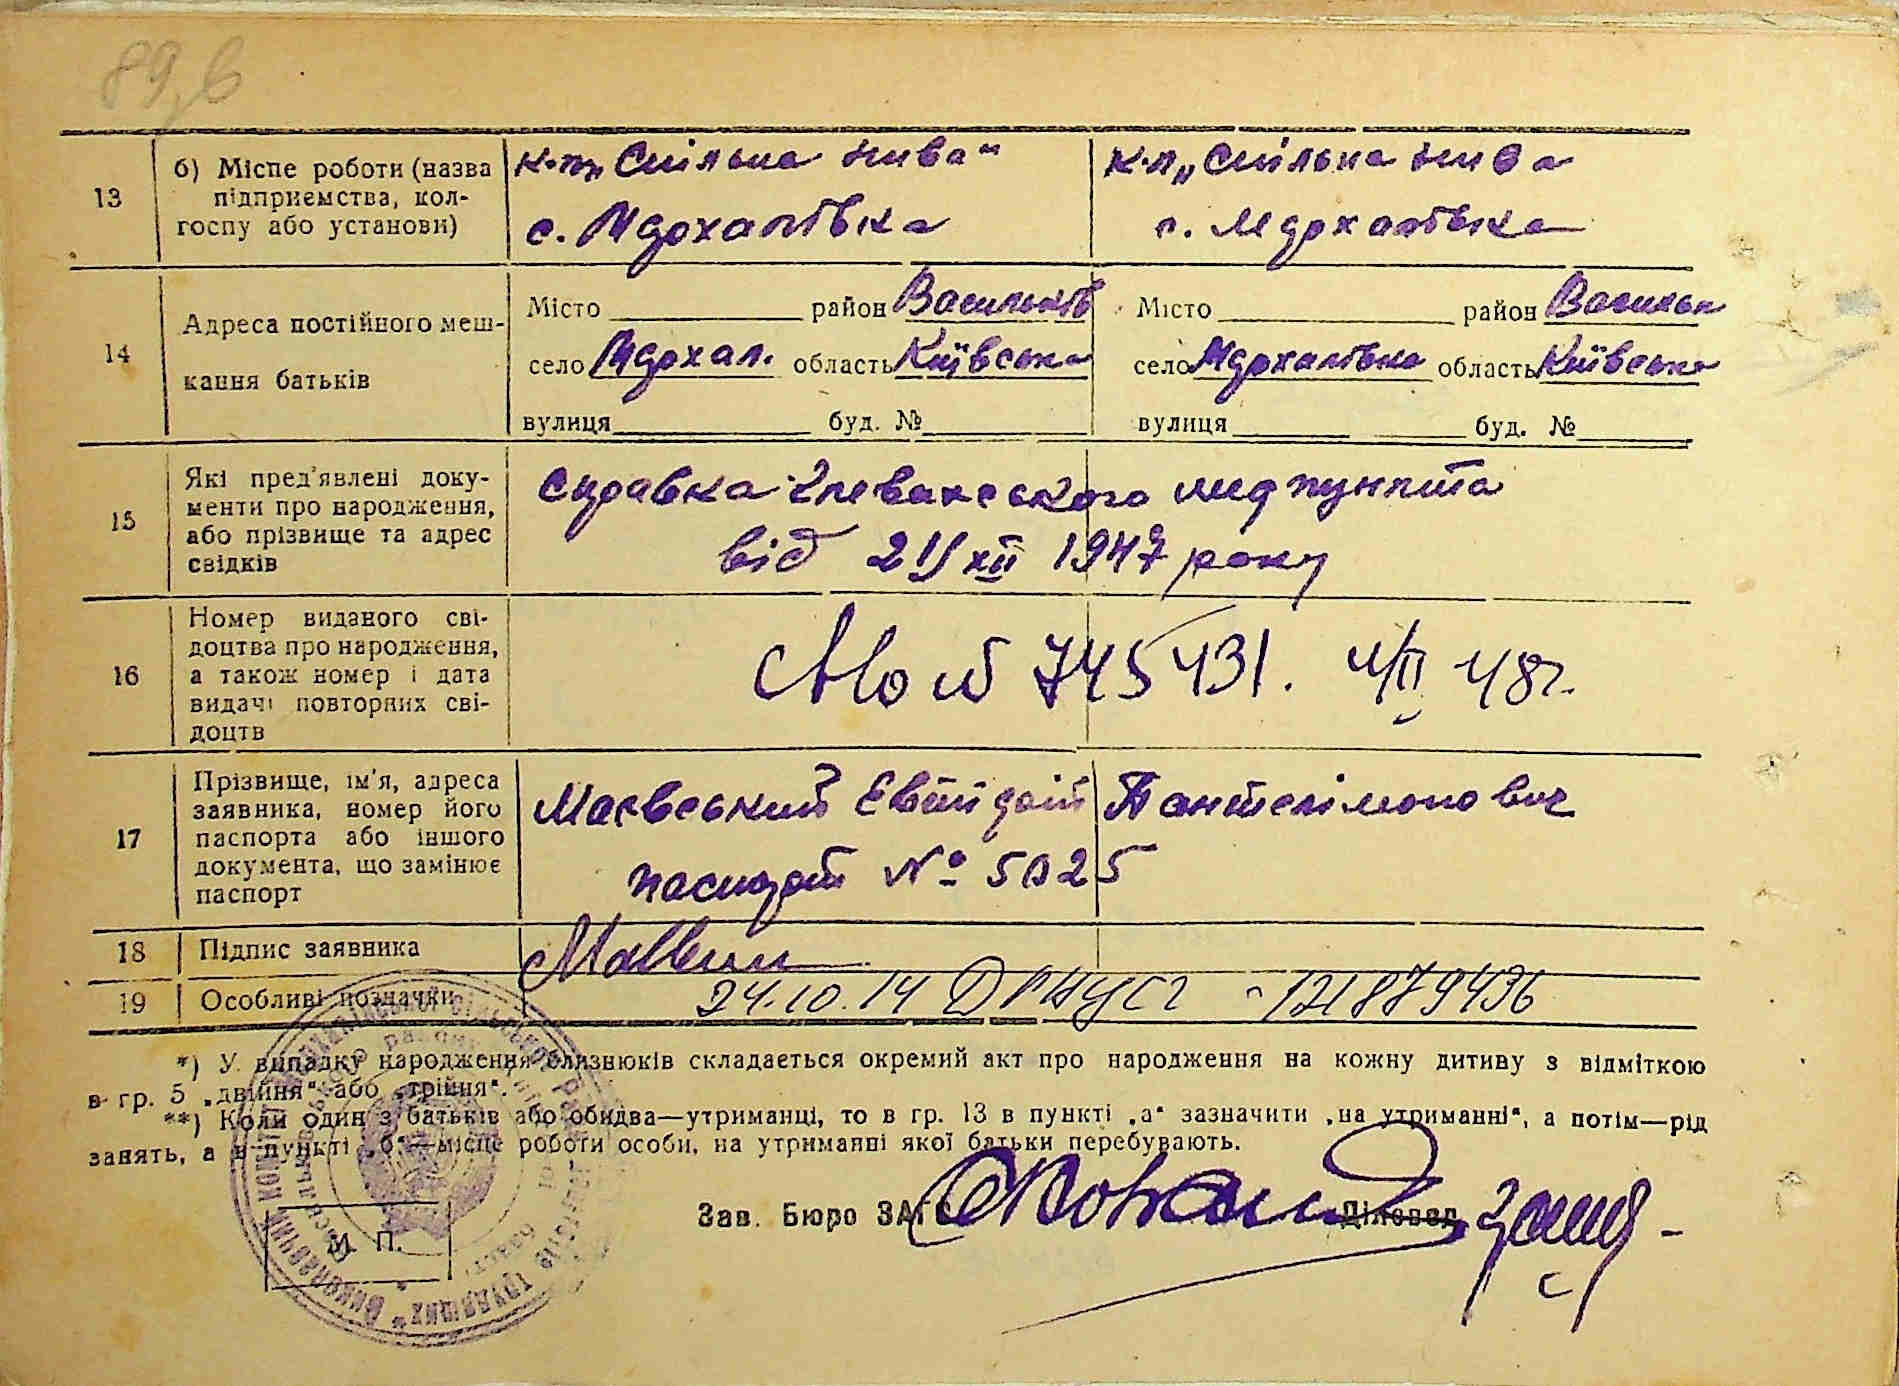 89,в
13 б) Місце роботи (назва підприємства, колгоспу або установи)
к-п „Спільна нива“ к-п „Спільна нива
с. Мархалівка с. Мархалівка
14 Адреса постійного мешкання батьків
Місто район Васильків Місто район Васильк
село Мархал. область Київська село Мархалівка область Київська
вулиця буд. № вулиця буд. №
15 Які пред'явлені документи про народження, або прізвище та адрес свідків
Справка медпункта
від 21/XII 1947 року
16 Номер виданого свідоцтва про народження, а також номер і дата видачі повторних свідоцтв
745431. 4/II 48г.
17 Прізвище, ім'я, адреса заявника, номер його паспорта або іншого документа, що замінює паспорт
Маєвський Пантелімонович
паспорт № 5025
18 Підпис заявника
19 Особливі позначки
24.10.14 ДРАЦСГ -121879436
*) У випадку народження близнюків складається окремий акт про народження на кожну дитину з відміткою
в гр. 5 „двійня“ або „трійня“.
**) Коли один з батьків або обидва—утриманці, то в гр. 13 в пункті „а“ зазначити „на утриманні“, а потім—рід
занять, а в пункті „б“—місце роботи особи, на утриманні якої батьки перебувають.
Зав. Бюро ЗАГС Діловод
М. П.